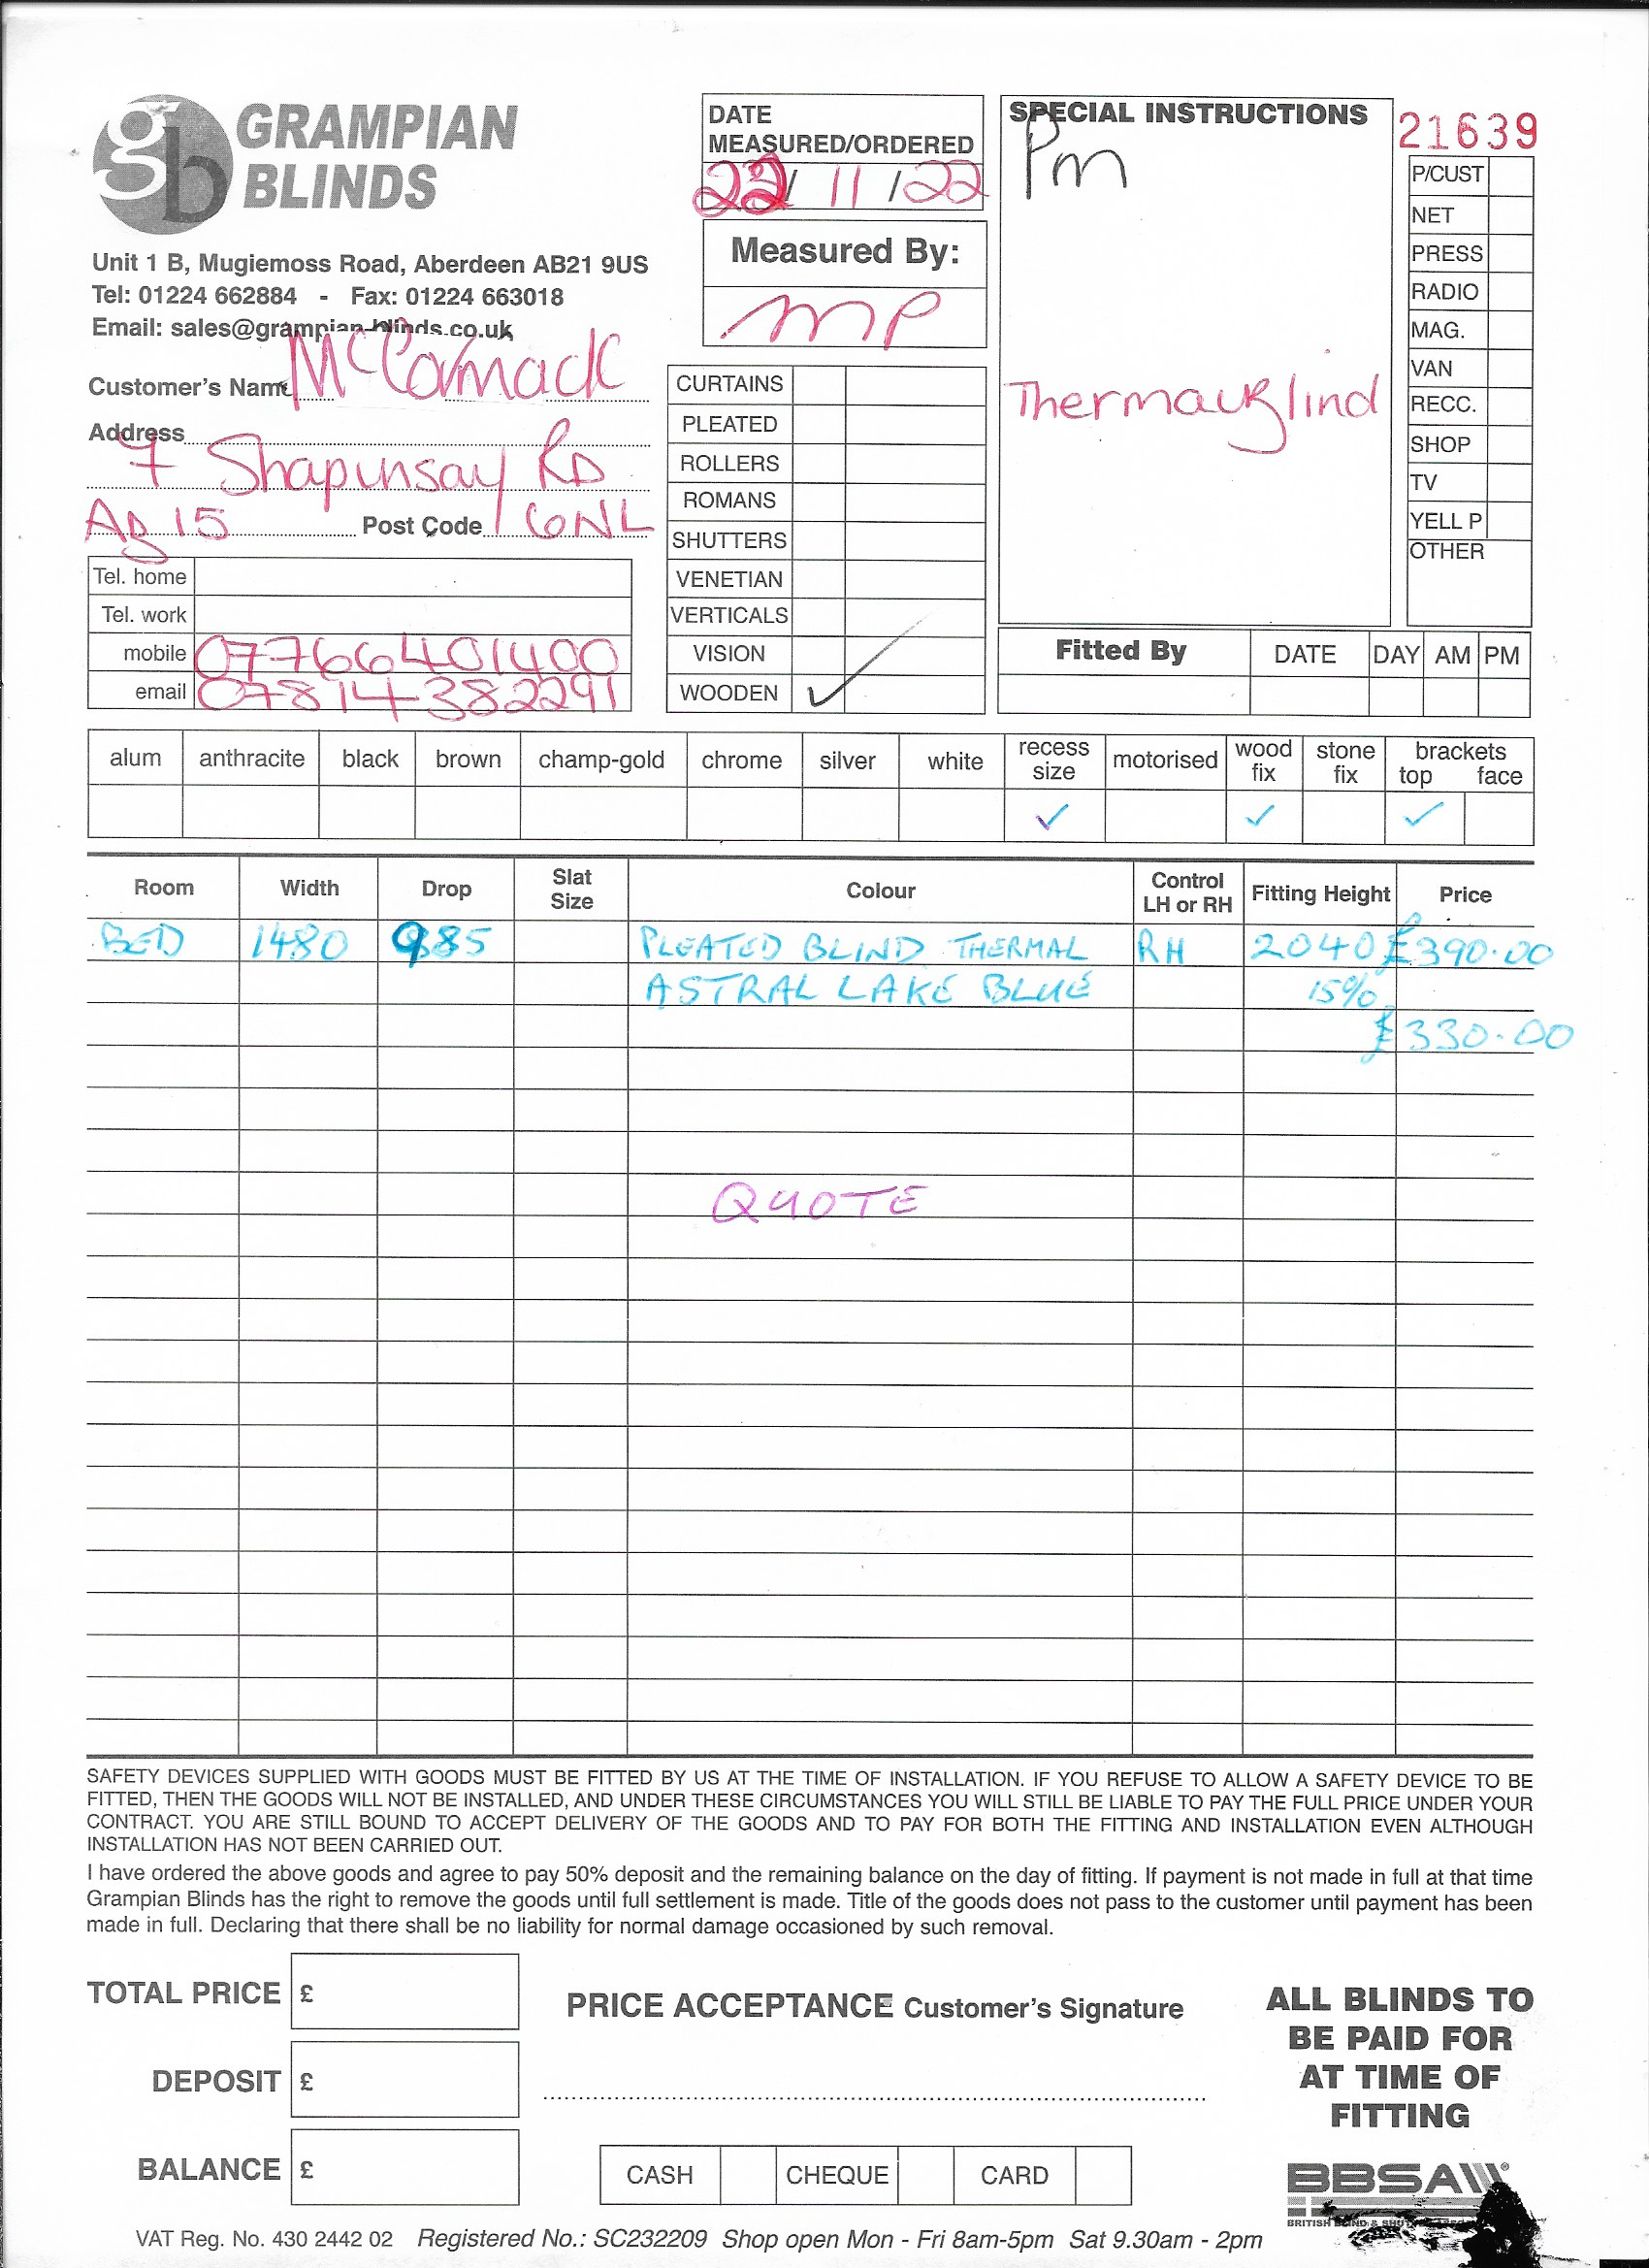 gb GRAMPIAN BLINDS
Unit 1 B, Mugiemoss Road, Aberdeen AB21 9US
Tel: 01224 662884 - Fax: 01224 663018
Email: sales@grampian-blinds.co.uk
Customer's Name McCormack
Address
7 Shapinsay RD
AB 15 Post Code 6NL
Tel. home
Tel. work
mobile 07766401400
email 07814382291
DATE
MEASURED/ORDERED
22/ 11 /22
Measured By:
MP
CURTAINS
PLEATED
ROLLERS
ROMANS
SHUTTERS
VENETIAN
VERTICALS
VISION
WOODEN ✓
SPECIAL INSTRUCTIONS
Pm
Thermal Blind
21639
P/CUST
NET
PRESS
RADIO
MAG.
VAN
RECC.
SHOP
TV
YELL P
OTHER
Fitted By DATE DAY AM PM
alum anthracite black brown champ-gold chrome silver white recess size motorised wood fix stone fix brackets top face
✓ ✓ ✓
Room Width Drop Slat Size Colour Control LH or RH Fitting Height Price
BED 1480 985 PLEATED BLIND THERMAL RH 2040 £390.00
ASTRAL LAKE BLUE 15%
£330.00
QUOTE
SAFETY DEVICES SUPPLIED WITH GOODS MUST BE FITTED BY US AT THE TIME OF INSTALLATION. IF YOU REFUSE TO ALLOW A SAFETY DEVICE TO BE
FITTED, THEN THE GOODS WILL NOT BE INSTALLED, AND UNDER THESE CIRCUMSTANCES YOU WILL STILL BE LIABLE TO PAY THE FULL PRICE UNDER YOUR
CONTRACT. YOU ARE STILL BOUND TO ACCEPT DELIVERY OF THE GOODS AND TO PAY FOR BOTH THE FITTING AND INSTALLATION EVEN ALTHOUGH
INSTALLATION HAS NOT BEEN CARRIED OUT.
I have ordered the above goods and agree to pay 50% deposit and the remaining balance on the day of fitting. If payment is not made in full at that time
Grampian Blinds has the right to remove the goods until full settlement is made. Title of the goods does not pass to the customer until payment has been
made in full. Declaring that there shall be no liability for normal damage occasioned by such removal.
TOTAL PRICE £
DEPOSIT £
BALANCE £
PRICE ACCEPTANCE Customer's Signature
CASH CHEQUE CARD
ALL BLINDS TO
BE PAID FOR
AT TIME OF
FITTING
BBSA
BRITISH
VAT Reg. No. 430 2442 02 Registered No.: SC232209 Shop open Mon - Fri 8am-5pm Sat 9.30am - 2pm